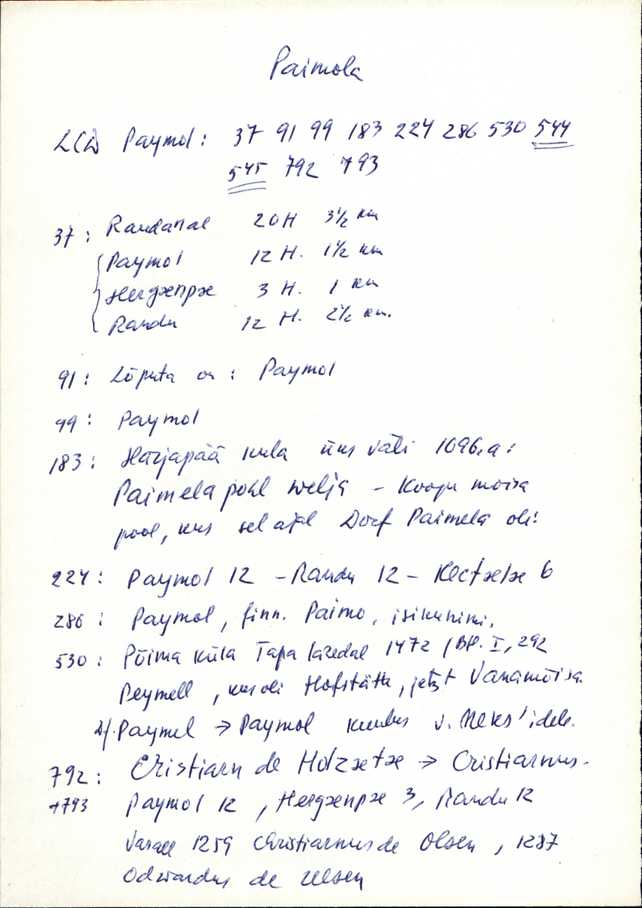 Paimola
LCD Paymol: 37 91 99 183 224 286 530 544
545 792 793
37: Randanal 20 H 3½ km
Paymol 12 H. 1½ km
Hergænpæ 3 H. 1 km
Randu 12 H. 2½ km.
91: Lõputa on: Paymol
99: Paymol
183: Harjapää küla üks väli 1696.a:
Paimela pohl welja – Koogu mõisa
pool, kus sel ajal Dorf Paimela oli.
224: Paymol 12 – Randu 12 – Kectæltæ 6
286: Paymol, finn. Paimo, isikunimi.
530: Põima küla Tapa lähedal 1472 (Bfl. I, 292
Peymell, kus oli Hofstätte, jetzt Vanamõisa.
Paymel → Paymol kuulus v. Meks'idele.
792: Cristiarn de Holzsætæ → Cristiarnus.
+793 Paymol 12, Hergænpæ 3, Randu 12
Vasall 1259 Christiarnus de Olsen, 1287
Odwardus de Ulsen